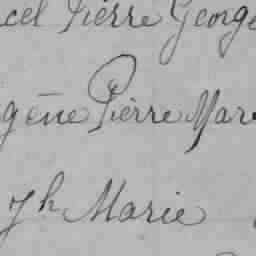 cel Pierre George
gène Pierre Mar
Jh Marie